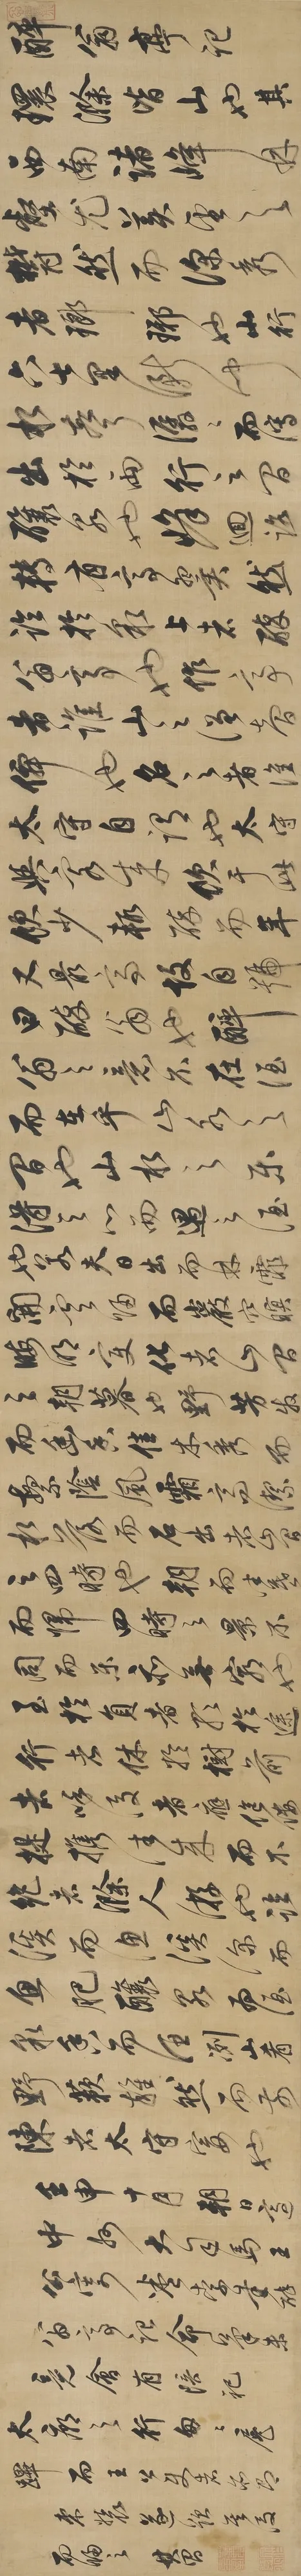 醉翁亭記
環滁皆山也其
西南諸峰林
壑尤美望之
蔚然而深秀
者瑯琊也山行
六七里漸聞
水聲潺潺而瀉
出於兩之間
釀泉也峰回路
轉有亭翼然
臨於泉上者醉
翁亭也作亭
者誰山之僧智
僊也名之者誰
太守自謂也太守
與客來飲于此
飲少輒醉而年
又最高故自號
曰醉翁也醉
翁之意不在酒
而在乎山水之
間也山水之樂
得之心而寓之酒
也若夫日出而林霏
開雲歸而巖穴暝
晦明變化者山間
之朝暮也野芳發
而幽香佳木秀而
繁陰風霜高潔
水落而石出者山間
之四時也朝而往暮
而歸四時之景不
同而樂亦無窮也
至於負者歌於途
行者休於樹前
者呼後者應傴僂
提攜往來而不
絕者滁人遊也臨
溪而漁溪深而
魚肥釀泉為酒
泉香而酒洌山肴
野蔌雜然而前
陳者太守宴也
壬申十月朔日
中州大司馬王
翁亭記
會有陪祀
太廟之行
而王公
而歸之其昌